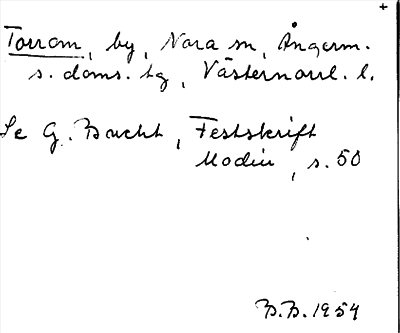 +
Torrom, by, Nora sn, Ångerm.
s. doms. tg, Västernorrl. l.
Se G. Bucht, Festskrift
Modin, s. 50
B.B. 1954